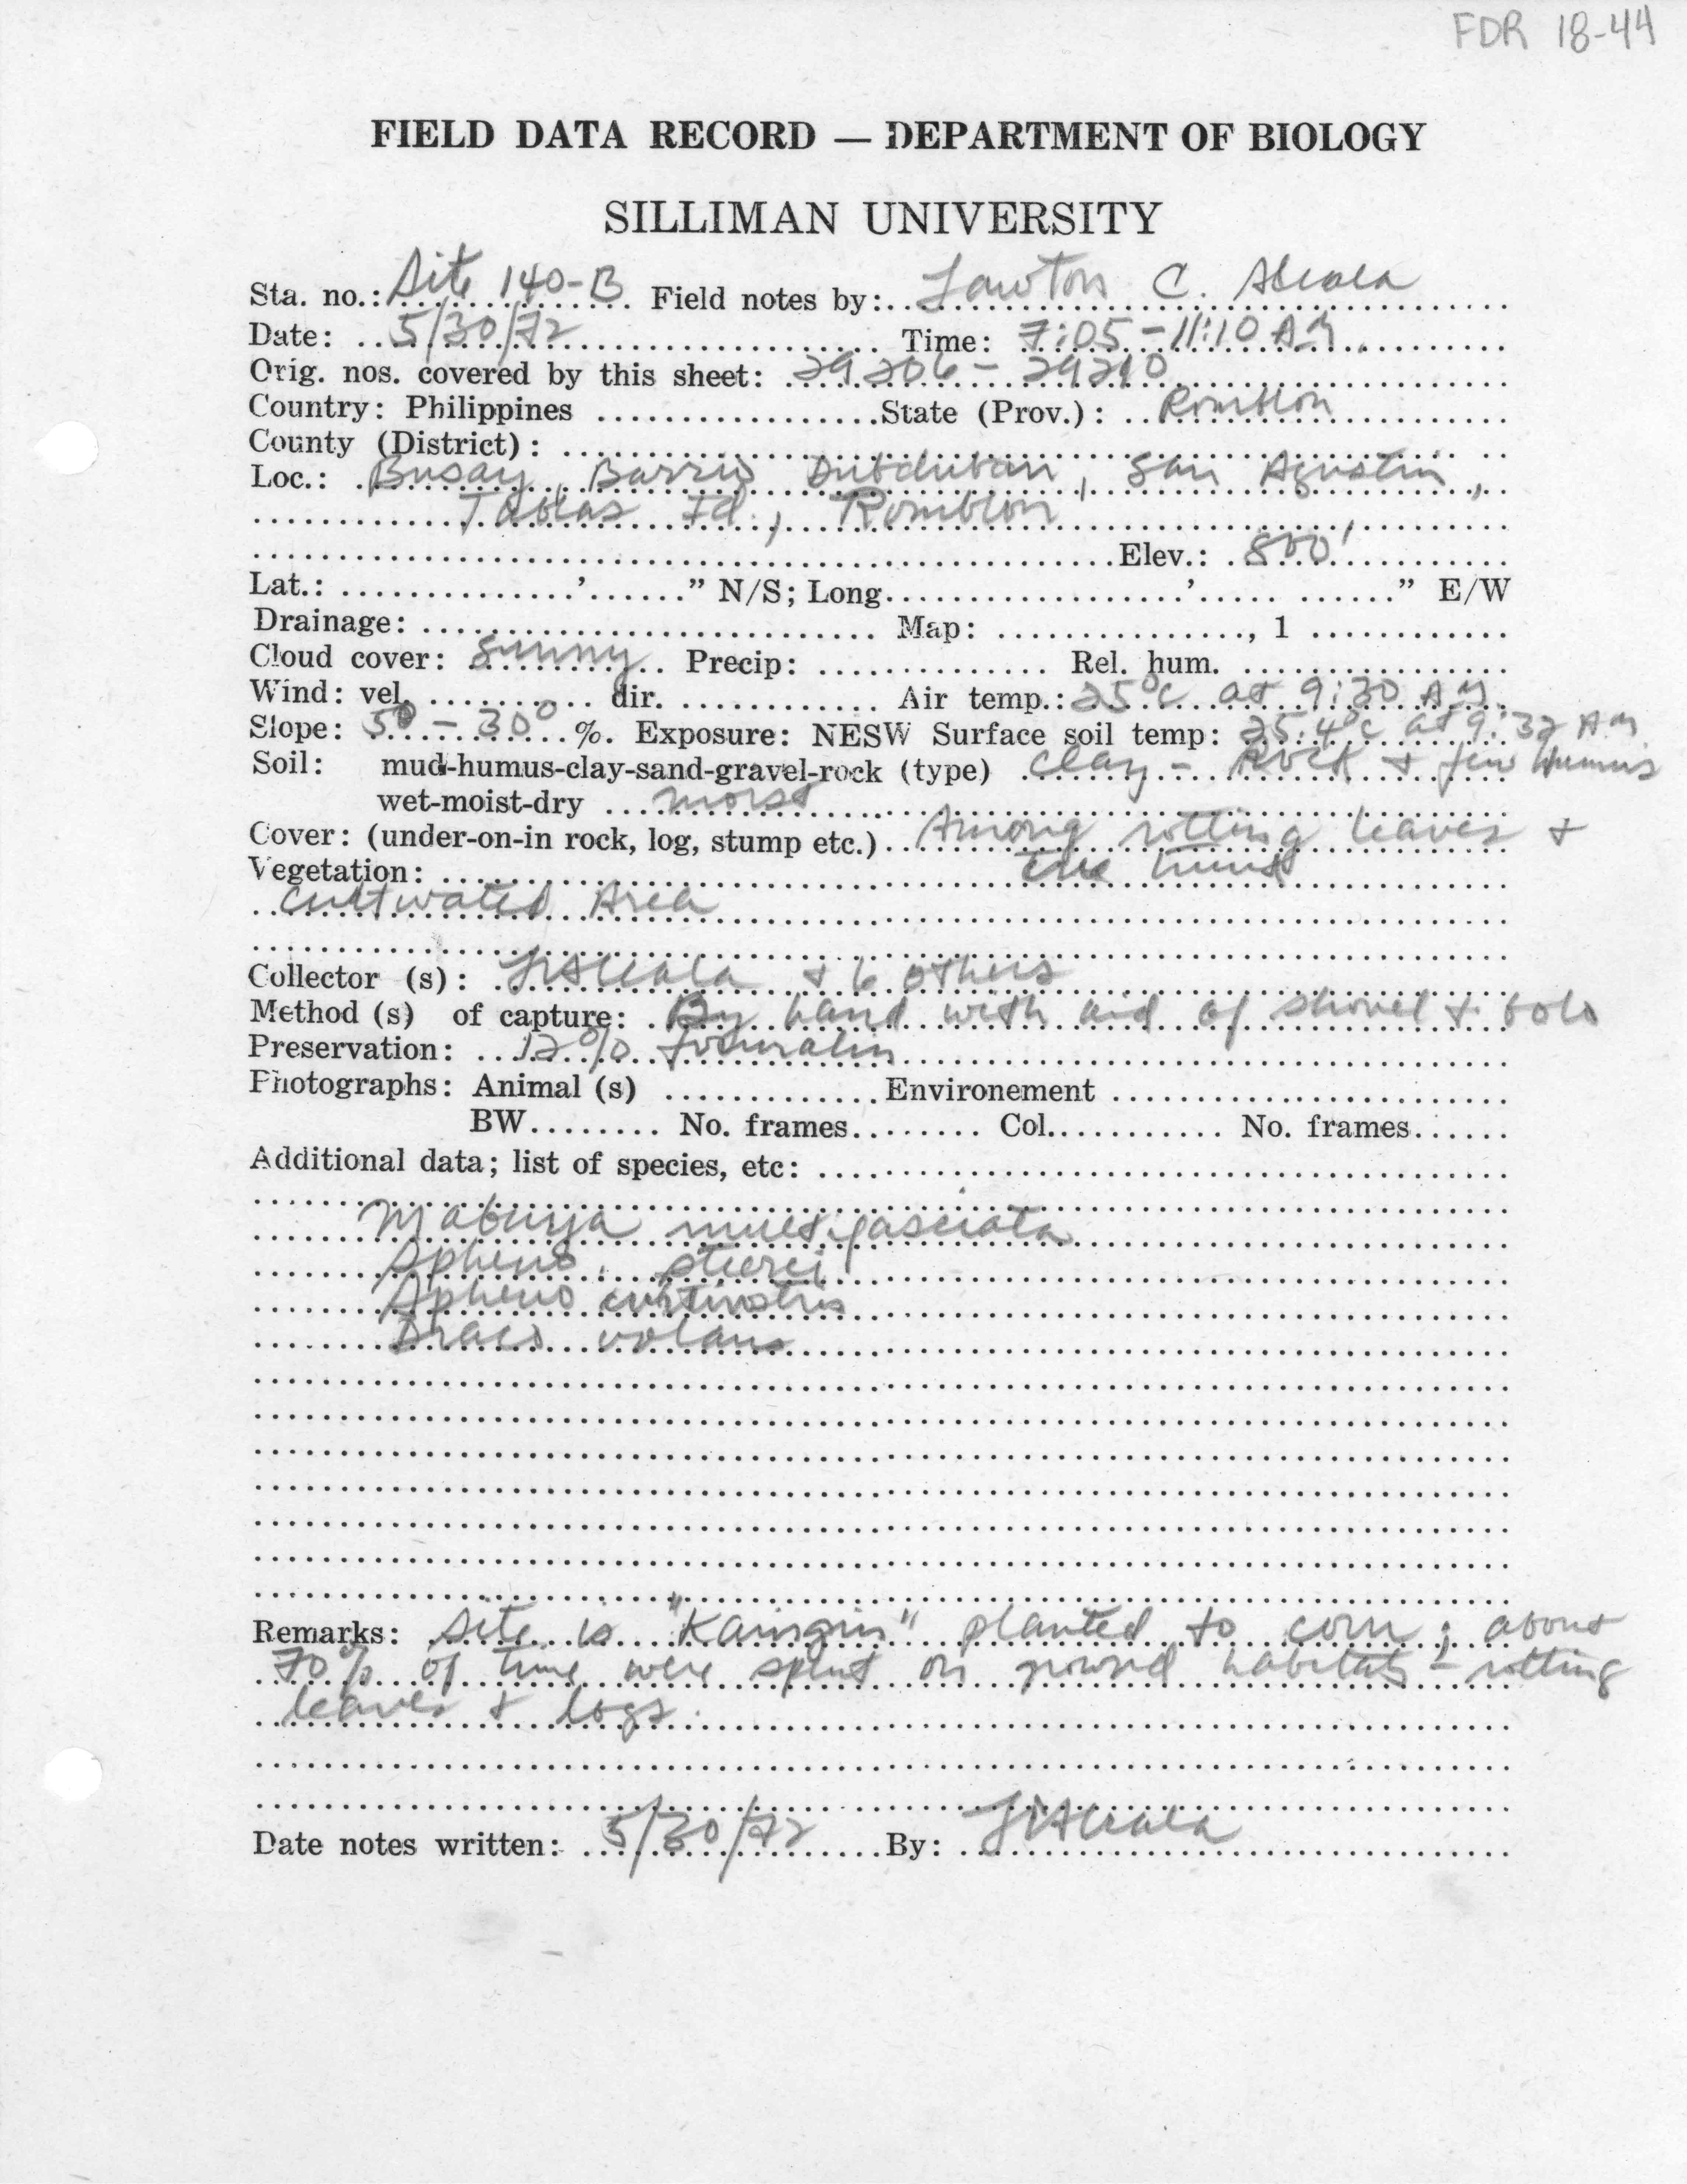 FDR 18-44
FIELD DATA RECORD — DEPARTMENT OF BIOLOGY
SILLIMAN UNIVERSITY
Sta. no.: Site 140-B Field notes by: Lawton C. Alcala
Date: 5/30/72 Time: 7:05 - 11:10 AM
Orig. nos. covered by this sheet: 29206 - 29210
Country: Philippines State (Prov.): Romblon
County (District):
Loc.: Busay, Barrio Dubduban, San Agustin,
Tablas Id., Romblon
Elev.: 800'
Lat.: ' " N/S; Long. ' " E/W
Drainage: Map: , 1
Cloud cover: Sunny Precip: Rel. hum.
Wind: vel. dir. Air temp.: 25°C at 9:30 AM
Slope: 5° - 30° %. Exposure: NESW Surface soil temp: 25.4°C at 9:32 AM
Soil: mud-humus-clay-sand-gravel-rock (type) Clay - Rock + few humus
wet-moist-dry moist
Cover: (under-on-in rock, log, stump etc.) Among rotting leaves +
Vegetation: tree
Cultivated Area
Collector (s): LAlcala + 6 others
Method (s) of capture: By hand with aid of shovel + bolo
Preservation: 12% formalin
Photographs: Animal (s) Environement
BW No. frames Col. No. frames
Additional data; list of species, etc:
Mabuya multifasciata
Spheno. steerei
Spheno curtirostris
Draco volans
Remarks: Site is "Kaingin" planted to corn; about
70% of time were spent on ground habitats - rotting
leaves + logs.
Date notes written: 5/30/72 By: LAlcala